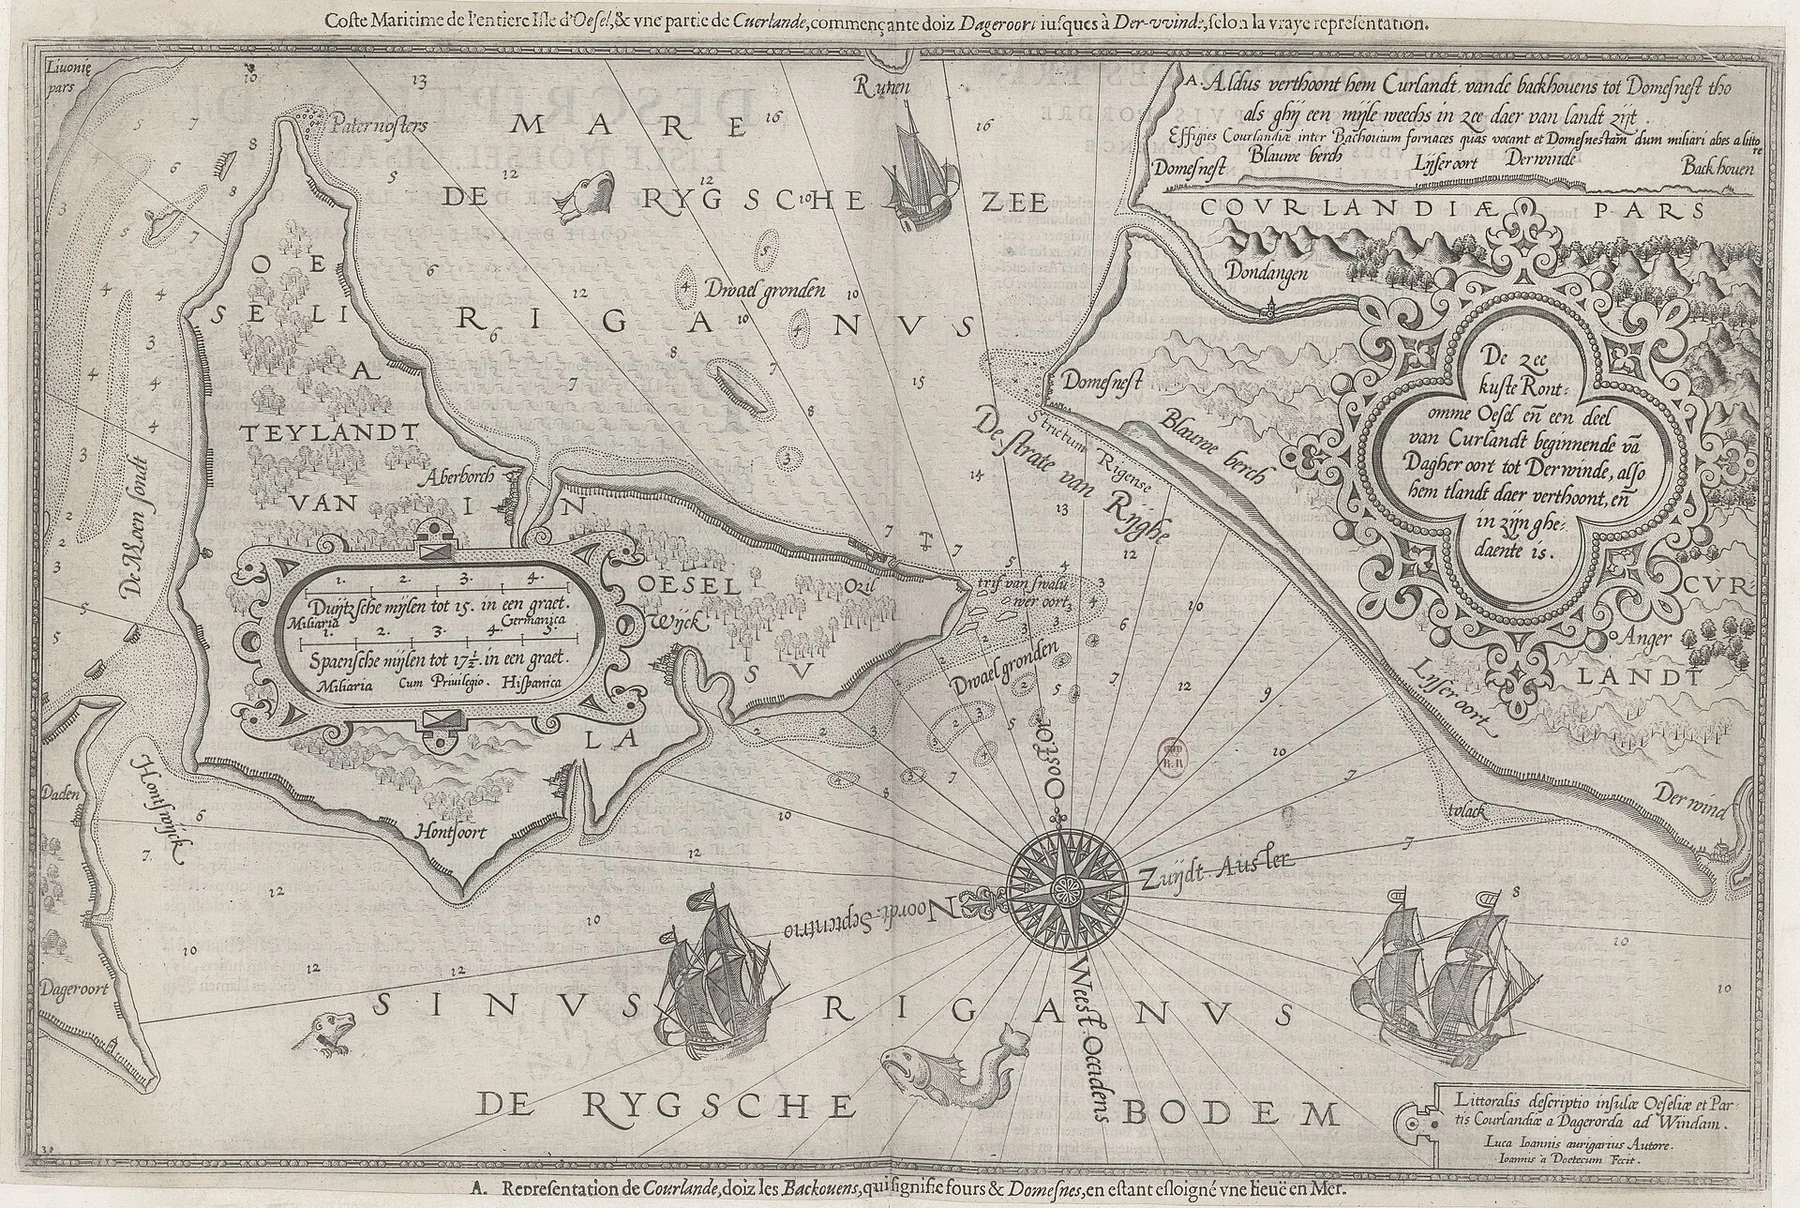 Coste Maritime de l'entiere Isle d'Oesel, & vne partie de Cuerlande, commençante doiz Dageroort iusques à Der-vvinde, selon la vraye representation.
Liuonię
pars
Paternosters
MARE
Runen
DE RYGSCHE ZEE
A. Aldus verthoont hem Curlandt vande backhouens tot Domesnest tho
als ghij een mijle weechs in zee daer van landt zijt.
Effigies Courlandiæ inter Bachouium fornaces quas vocant et Domesnestam dum miliari abes a litto
re
Domesnest
Blauwe berch
Lijseroort
Derwinde
Backhouen
COVRLANDIÆ PARS
Dondangen
OE
SELI
A
RIGANVS
Dwael gronden
TEYLANDT
VAN
IN
Aberborch
De Moen sondt
Domesnest
Strictum Rigense
De strate van Rijghe
Blauwe berch
De zee
kuste Ront:
omme Oesel eñ een deel
van Curlãdt beginnende vã
Dagher oort tot Derwinde, also
hem tlandt daer verthoont, eñ
in zijn ghe:
daente is.
1. 2. 3. 4.
Duijtzsche mijlen tot 15. in een graet.
Miliaria Germanica
1. 2. 3. 4. 5.
Spaensche mijlen tot 17½. in een graet.
Miliaria Cum Priuilegio. Hispanica
OESEL
Ozil
Wijck
SV
LA
trif van swalu
wer oort
Dwael gronden
CVR
LANDT
Anger
Lijser oort
Der wind
wlack
Daden
Hontswijck
Hontsoort
Dageroort
Oost Or
Zuijdt Auster
Noordt. Septentrio
Weest. Occidens
SINVS RIGANVS
DE RYGSCHE BODEM
Littoralis descriptio insulæ Oeseliæ et Par:
tis Courlandiæ a Dagerorda ad Windam.
Luca Ioannis aurigarius Autore.
Ioannis a Doetecum Fecit.
A. Representation de Courlande, doiz les Backouens, qui signifie fours & Domesnes, en estant esloigné vne lieuë en Mer.